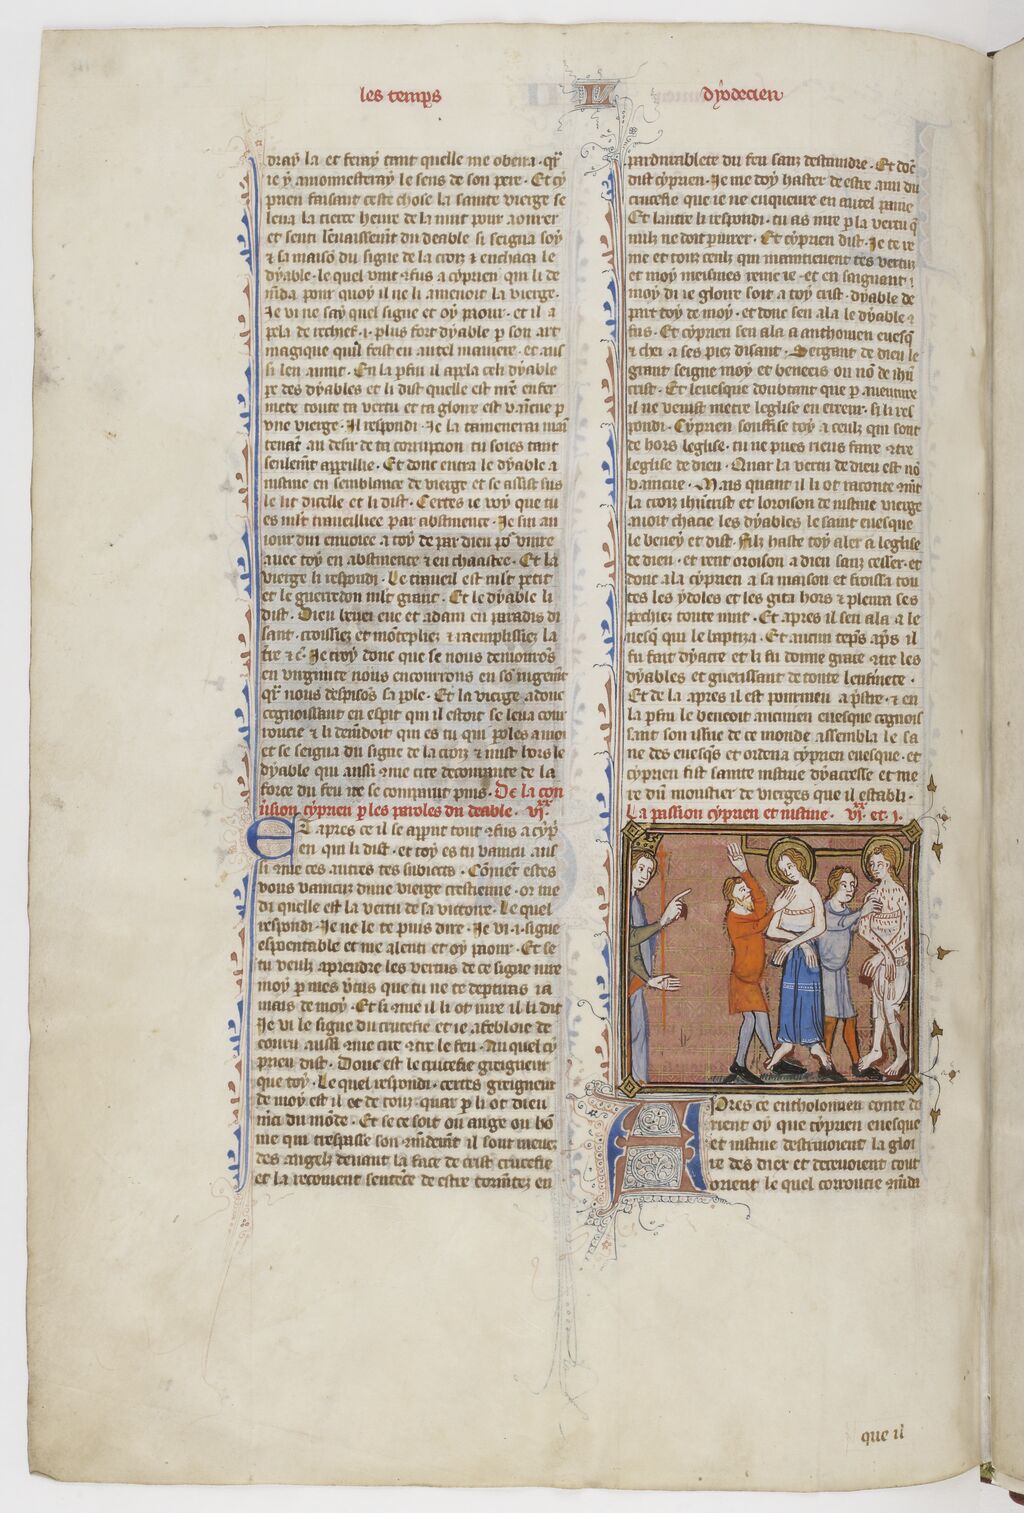 les temps
L
dyodecien
dray la et feray tant quelle me obeira · qr
ie y amonnesteray le sens de son pere · Et cy
prien faisant ceste chose la sainte vierge se
leua la tierce heure de la nuit pour aourer
et senti lenuaissement du deable si seigna soy
⁊ sa maisō du signe de la croiz ⁊ enchaca le
dyable · le quel vint ⁊ fus a cyprien qui li de
māda pour quoy il ne li amenoit la vierge ·
Je vi ne say quel signe et oy paour · et il a
pela de rechief · i · plus fort dyable p son art
magique quil feist en autel maniere · et aus
si len auint · En la pfin il apela celi dyable
pe des dyables et li dist quelle est mre enfer
mete toute ta vertu et ta gloire est vaincue p
vne vierge · Il respondi · Je la tamenerai main
tenāt au desir de ta corrupcion tu soies tant
seulemt appeillie · Et donc entra le dyable a
iustine en semblance de vierge et se assist sus
le lit dicelle et li dist · Certes ie voy que tu
es mlt trauelliee par abstinence · Je sui au
iour dui enuoiee a toy de par dieu por viure
auec toy en abstinence ⁊ en chaastee · Et la
vierge li respondi · Le trauail est mlt petit
et le guerredon mlt grant · Et le dyable li
dist · Dieu benei eue et adam en paradis di
sant · croissiez et mōtepliez ⁊ raemplissiez la
tre ⁊ c̄ · Je croy donc que se nous demourōs
en virginite nous encourrons en so iugemt
qr nous despisōs sa pole · Et la vierge adonc
cognoissant en espit qui il estoit se leua cour
rouciee ⁊ li demādoit qui es tu qui poles a moi
et se seigna du signe de la croiz ⁊ mist hors le
dyable qui aussi ⁊me cire decourante de la
force du feu ne se comparut puis · De la con
uersion cyprien p les paroles du deable · vixx
Et apres ce il se apparut tout ⁊fus a cypp
en qui li dist · et toy es tu vaincu aus
si ⁊me ces autres tes subiects · Cōment estes
vous vaincuz dune vierge crestienne · or me
di quelle est la vertu de sa victoire · Le quel
respondi · Je ne le te puis dire · Je vi · i · signe
espoentable et me alenti et oy paour · Et se
tu veulz aprendre les vertus de ce signe iure
moy p mes vtus que tu ne te deptiras ia
mais de moy · Et si ⁊me il li ot iure il li dit
Je vi le signe du crucefie et ie afebloie de
couru aussi ⁊me cire ⁊tre le feu · Au quel cy
prien dist · Donc est le crucefie greigneur
que toy · Le quel respondi · certes greigneur
de moy est il et de touz · quar p li ot dieu
merci du mōde · Et se ce soit ou ange ou hō
me qui trespasse son ⁊mādemēt il sont menez
des angelz deuant la face de crist crucefie
et la recoiuent sentēce de estre tormētez en
pardurablete du feu sanz destaindre · Et dōc
dist cyprien · Je me doy haster de estre ami du
crucefie que ie ne enqueure en autel paine
Et lautre li respondi · tu as iure p la vertu q̄
nulz ne doit piurer · Et cyprien dist · Je te re
nie et touz ceulz qui maintienent tes vertuz
et moy meismes renie ie · et en saignant i
moy di ie gloire soit a toy crist · dyable de
part toy de moy · et donc sen ala le dyable ⁊
fus · Et cyprien sen ala a anthonien euesq̄
⁊ chei a ses piez disant · Sergant de dieu le
grant seigne moy et beneeis ou nō de ihū
crist · Et leuesque doubtant que p auenture
il ne venist metre leglise en erreur · si li res
pondi · Cyprien souffise toy a ceulz qui sont
de hors leglise · tu ne pues riens faire ⁊tre
leglise de dieu · Quar la vertu de dieu est nō
vaincue · Mais quant il li ot raconte ⁊mt
la croiz ihūcrist et loroison de iustine vierge
auoit chacie les dyables le saint euesque
le beney et dist · Filz haste toy aler a leglise
de dieu · et rent oroison a dieu sanz cesser · et
donc ala cyprien a sa maison et froissa tou
tes les ydoles et les gita hors ⁊ pleura ses
pechiez toute nuit · Et apres il sen ala a le
uesq̄ qui le baptiza · Et aucun teps aps il
fu fait dyacre et li fu donne grace ⁊tre les
dyables et guerissant de toute lenfirmete ·
Et de la apres il est pourueu a pstre · ⁊ en
la pfin le benoit anciuen euesque cognois
sant son issue de ce monde assembla le sa
ne des euesq̄s et ordena cyprien euesque · et
cyprien fist sainte iustine dyacesse et me
re dū monstier de vierges que il establi ·
La passion cyprien et iustine · vixx et · i ·
Apres ce eutholomieu conte do
rient oy que cyprien euesque
et iustine destruioient la gloi
re des diex et deceuoient tout
orient le quel corroucie māda
que il